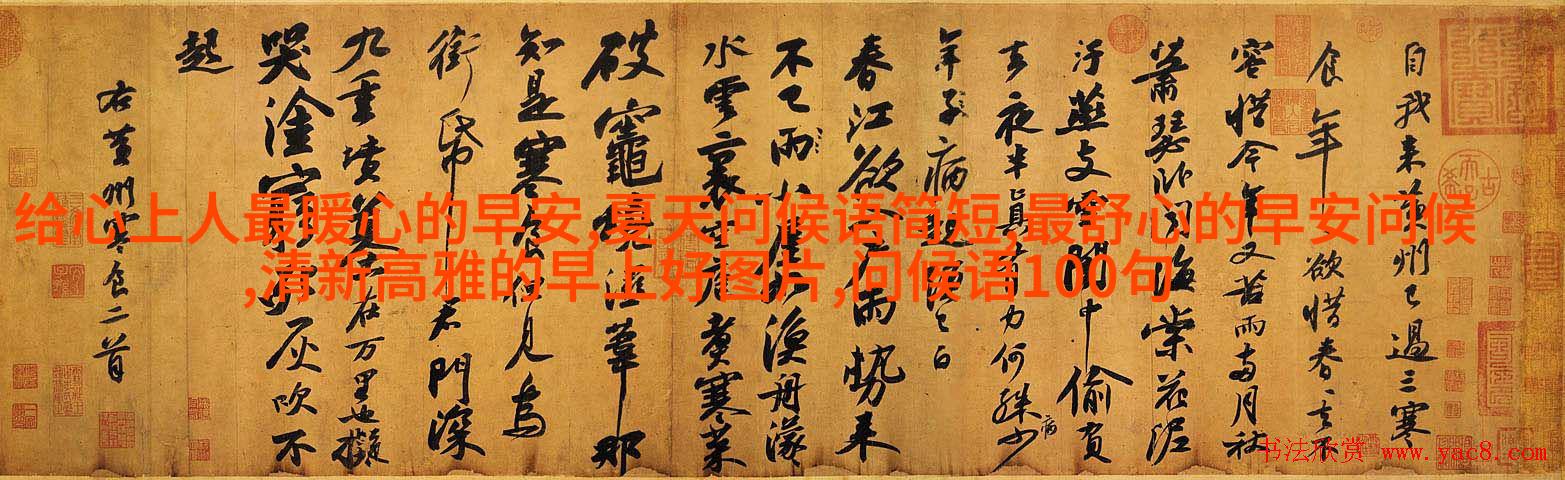 给心上人最暖心的早安,夏天问候语简短,最舒心的早安问候
,清新高雅的早上好图片,问候语100句
自我来黄州已過三寒
食年〻欲惜春〻去不
容惜今年又苦雨兩月秋
蕭瑟卧聞海棠花泥
汙燕支雪闇中偷負
去夜半真有力何殊少
年子病起頭已白
春江欲入戶雨勢来
不已雨小屋如漁舟濛〻
水雲裏空庖煑寒菜
破竈燒濕葦那
知是寒食但見烏
銜帋君門深
九重墳墓在万里也擬
哭塗窮死灰吹不
起
右黄州寒食二首
书法欣赏 www.yac8.com